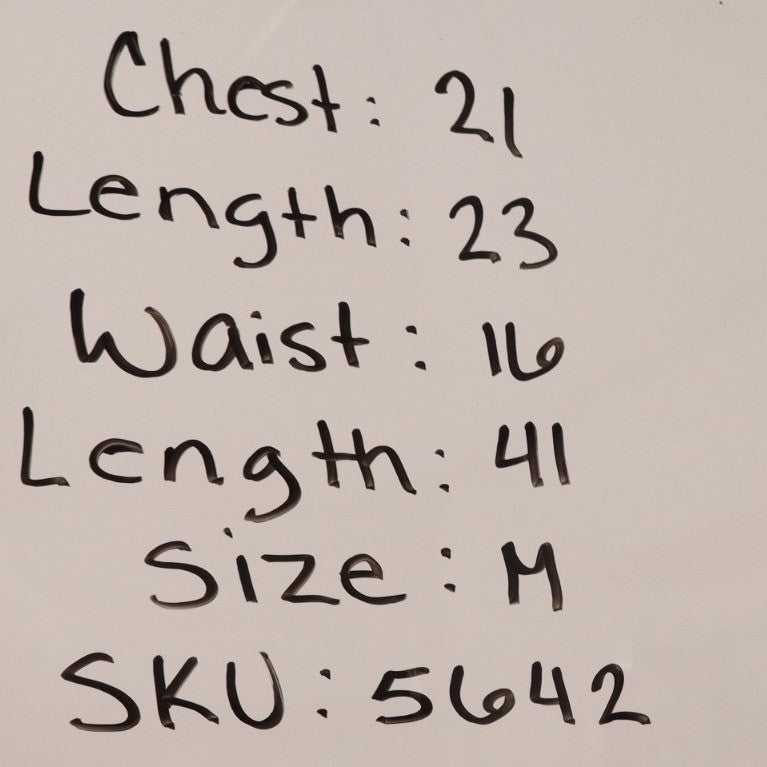 Chest: 21
Length: 23
Waist: 16
Length: 41
Size: M
SKU: 5642